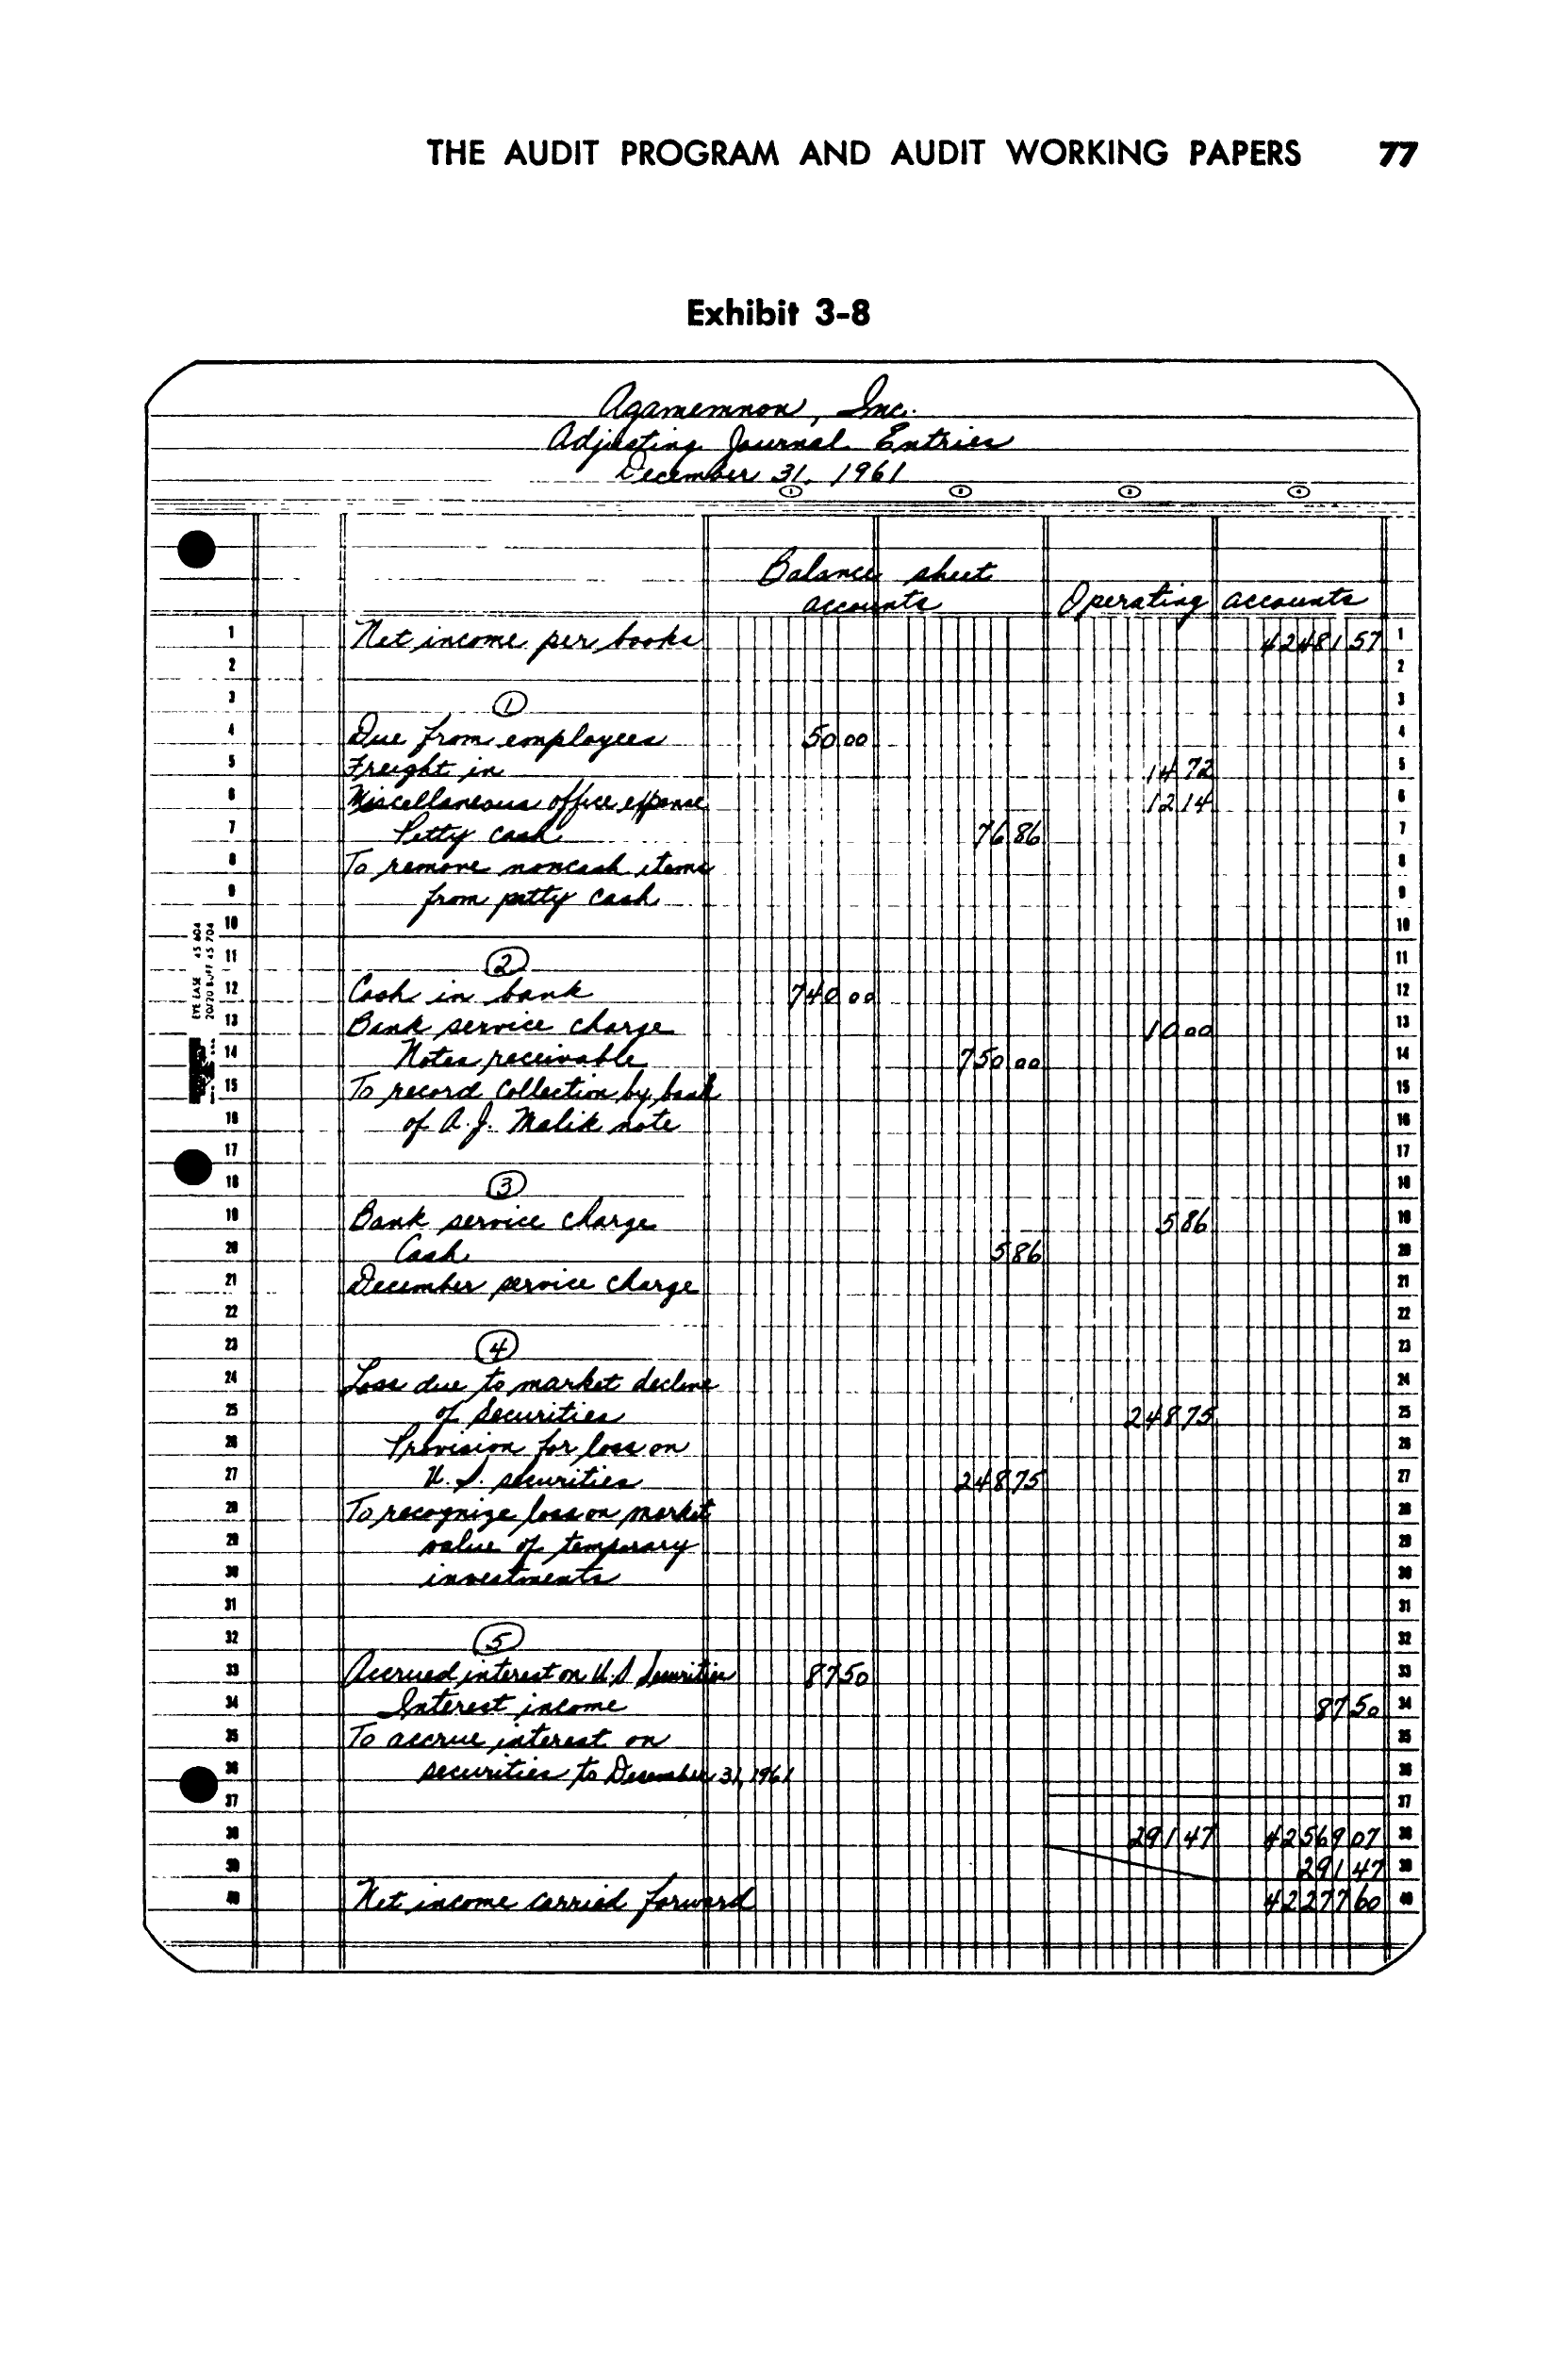 THE AUDIT PROGRAM AND AUDIT WORKING PAPERS 77
Exhibit 3-8
Agamemnon, Inc.
Adjusting Journal Entries
December 31, 1961
1 2 3 4
Balance sheet
accounts Operating accounts
1 Net income per books 42481 57 1
2 2
3 1 3
4 Due from employees 50 00 4
5 Freight in 14 72 5
6 Miscellaneous office expense 12 14 6
7 Petty cash 76 86 7
8 To remove noncash items 8
9 from petty cash 9
10 10
11 2 11
12 Cash in bank 740 00 12
13 Bank service charge 10 00 13
14 Notes receivable 750 00 14
15 To record collection by bank 15
16 of A. J. Malik note 16
17 17
18 3 18
19 Bank service charge 5 86 19
20 Cash 5 86 20
21 December service charge 21
22 22
23 4 23
24 Loss due to market decline 24
25 of securities 248 75 25
26 Provision for loss on 26
27 U. S. securities 248 75 27
28 To recognize loss on market 28
29 value of temporary 29
30 investments 30
31 31
32 5 32
33 Accrued interest on U.S Securities 87 50 33
34 Interest income 87 50 34
35 To accrue interest on 35
36 securities to December 31, 1961 36
37 37
38 291 47 42569 07 38
39 291 47 39
40 Net income carried forward 42277 60 40
EYE EASE 45 604
20/20 BUFF 45 704